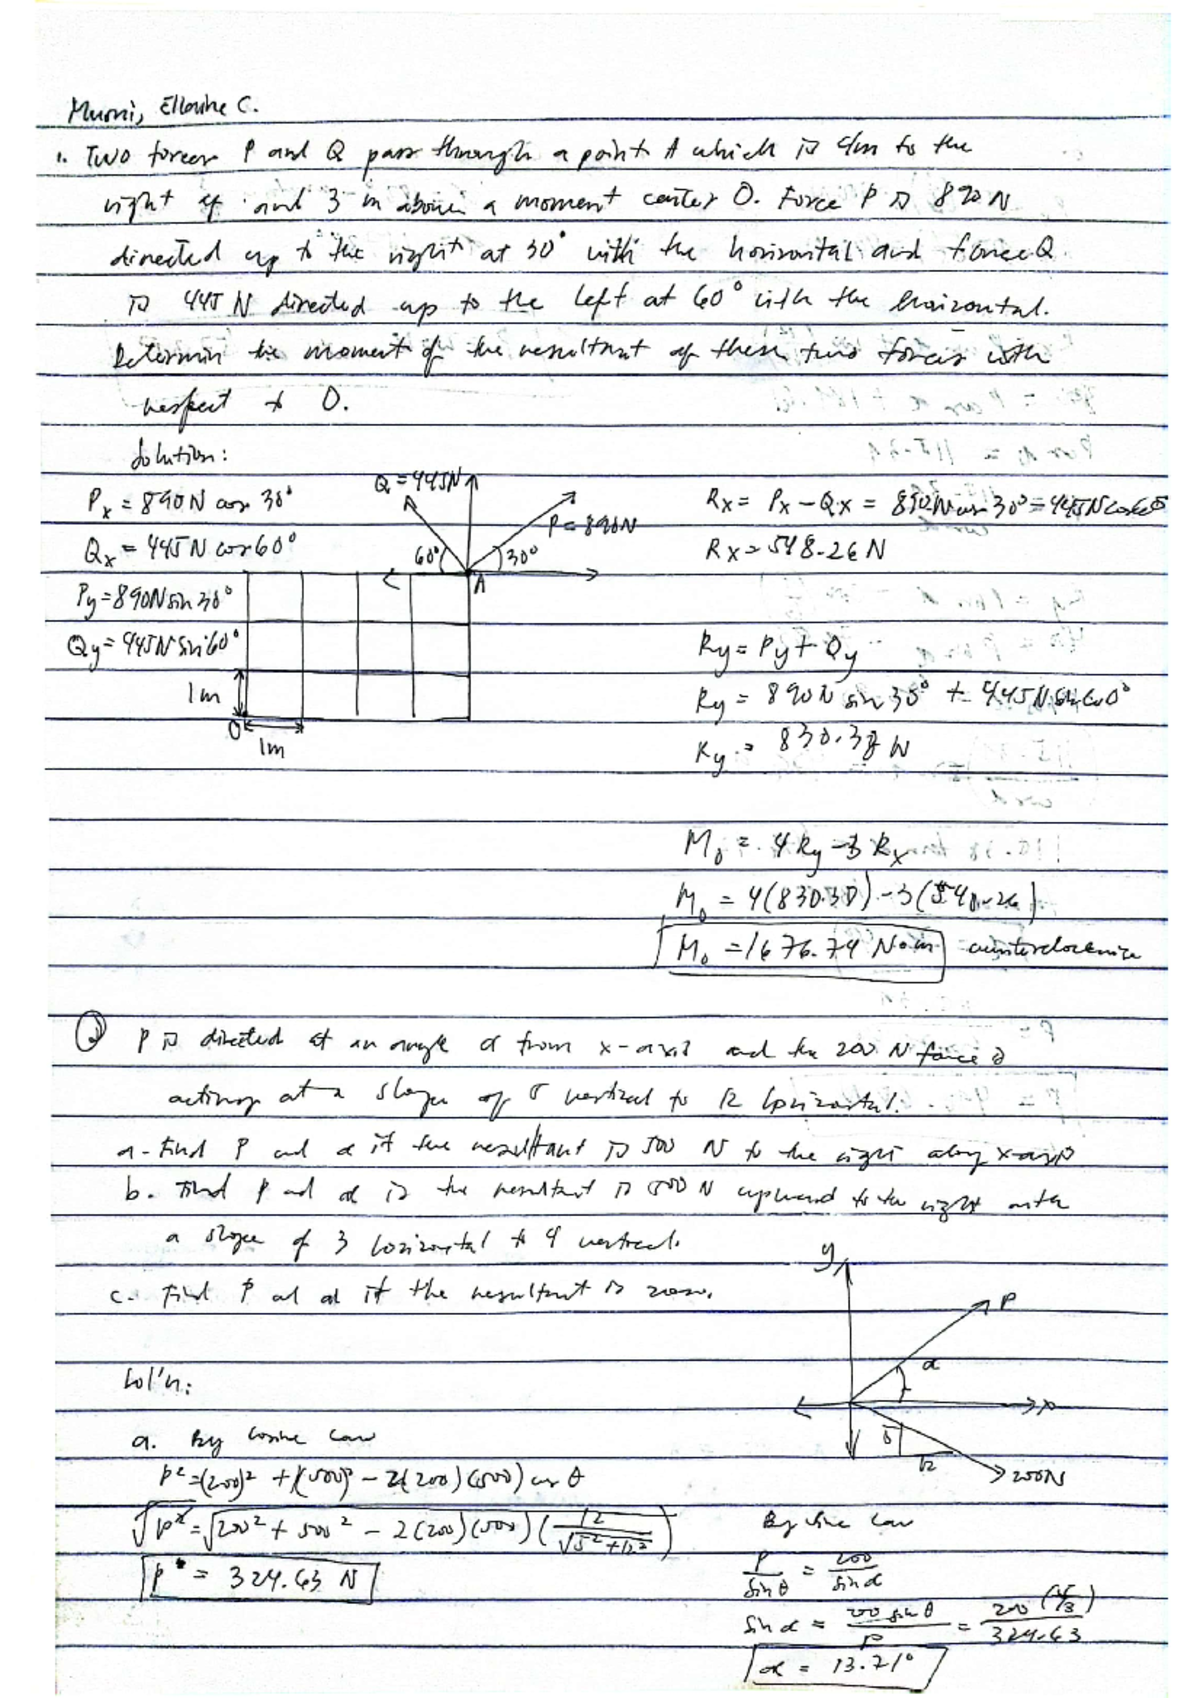 1. Two forces P and Q pass through a point A which is 4m to the
right of and 3 m above a moment center O. Force P is 890 N
directed up to the right at 30° with the horizontal and force Q
is 445 N directed up to the left at 60° with the horizontal.
Determin the moment of the resultant of these two forces with
respect to O.
Solution:
Px = 890N cos 30°
Qx = 445N cos60°
Py = 890N sin 30°
Qy = 445N sin 60°
Q = 445N
P = 890N
60°
30°
A
1m
O
1m
Rx = Px - Qx = 890N cos 30° = 445N cos60
Rx = 548.26 N
Ry = Py + Qy
Ry = 890N sin 30° + 445N sin 60°
Ry = 830.38 N
Mo = 4Ry - 3Rx
Mo = 4(830.38) - 3(548.26)
Mo = 1676.74 N·m counterclockwise
② P is directed at an angle α from x-axis and the 200 N force is
acting at a slope of 5 vertical to 12 horizontal.
a. Find P and α if the resultant is 500 N to the right along x-axis
b. Find P and α is the resultant is 500 N upward to the right with
a slope of 3 horizontal to 4 vertical.
c. Find P and α if the resultant is zero.
y
P
α
x
5
12
200N
Sol'n:
a. By Cosine Law
P² = (200)² + (500)² - 2(200)(500) cos θ
√P² = √200² + 500² - 2(200)(500)(12/√5²+12²)
P = 324.63 N
By Sine Law
P/sin θ = 200/sin α
sin α = 200 sin θ/P = 200 (5/13)/324.63
α = 13.71°